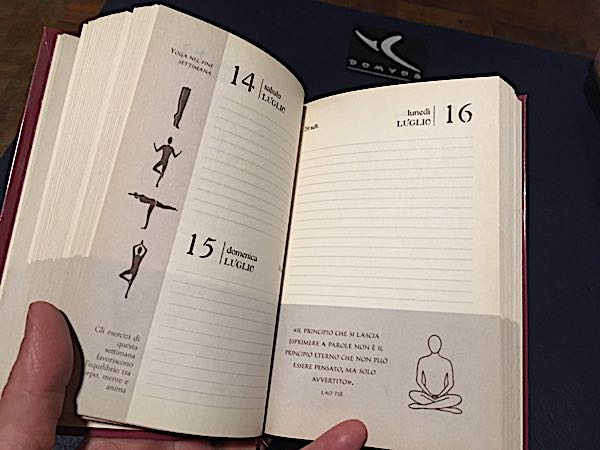 YOGA NEL FINE
SETTIMANA
14 sabato
LUGLIO
15 domenica
LUGLIO
Gli esercizi di
questa
settimana
favoriscono
l'equilibrio tra
corpo, mente e
anima
DOMYOS
lunedì
LUGLIO 16
29 sett.
«IL PRINCIPIO CHE SI LASCIA
ESPRIMERE A PAROLE NON È IL
PRINCIPIO ETERNO CHE NON PUÒ
ESSERE PENSATO, MA SOLO
AVVERTITO».
LAO TSE